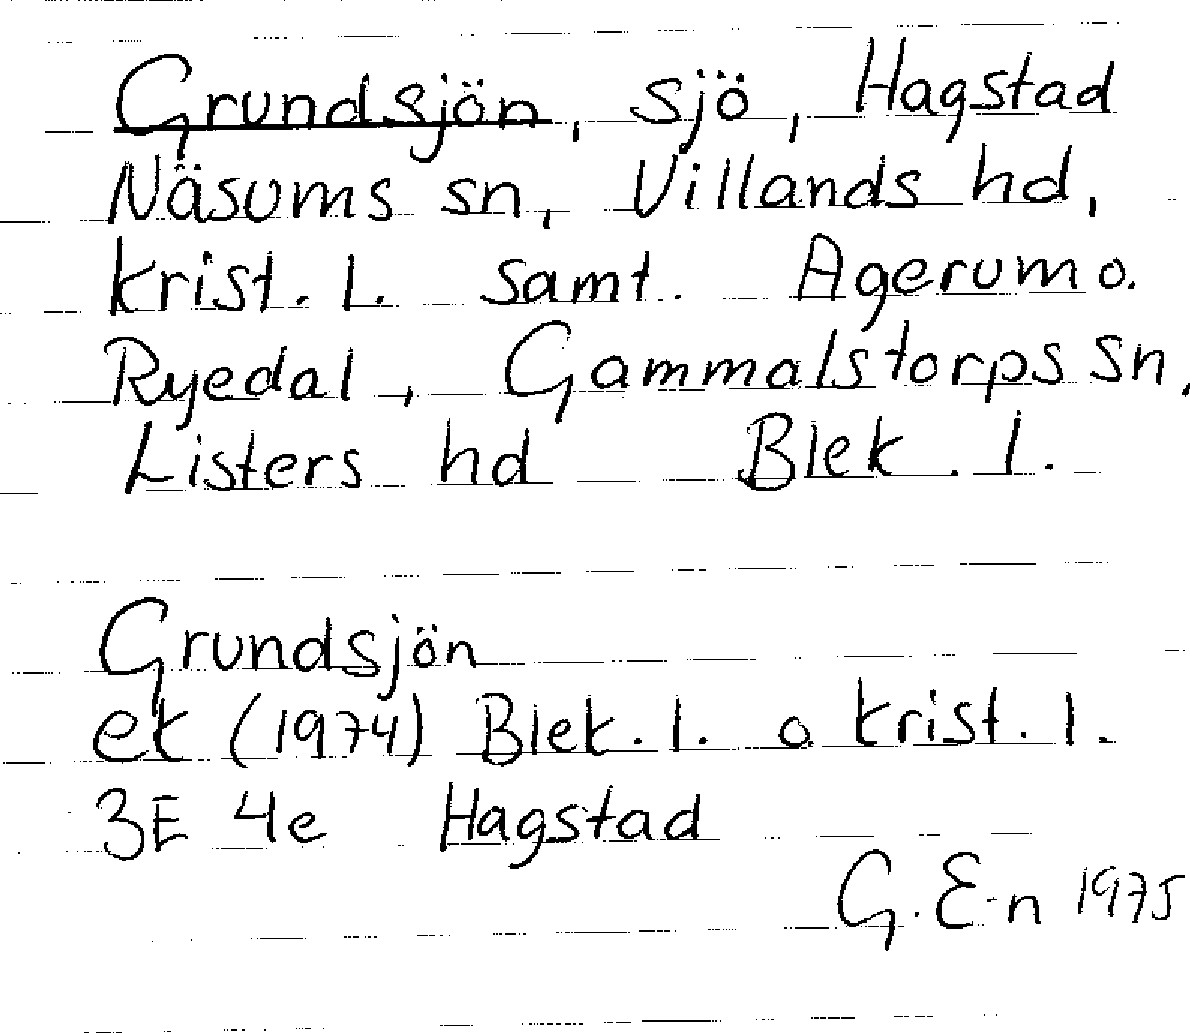 Grundsjön, sjö, Hagstad
Näsums sn, Villands hd,
Krist. l. samt. Agerum o.
Ryedal, Gammalstorps sn,
Listers hd Blek. l.
Grundsjön
ek (1974) Blek. l. o Krist. l.
3E 4e Hagstad
G. E-n 1975